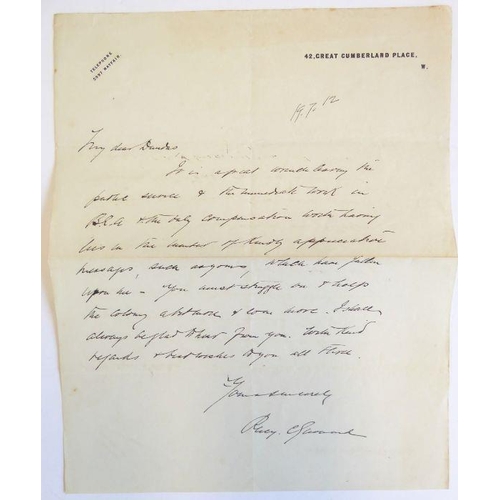 TELEPHONE
MAYFAIR.
42, GREAT CUMBERLAND PLACE,
W.
19.7.12
My dear Dundas
It is a great wrench leaving the
public service & the immediate work in
B.E.A & the only compensation worth having
lies in the number of kindly appreciative
messages, such as yours, which have fallen
upon me – You must struggle on & help
the colony a bit more & even more. I shall
always be glad to hear from you. With kind
regards & best wishes to you all
Yours sincerely
Percy. Girouard